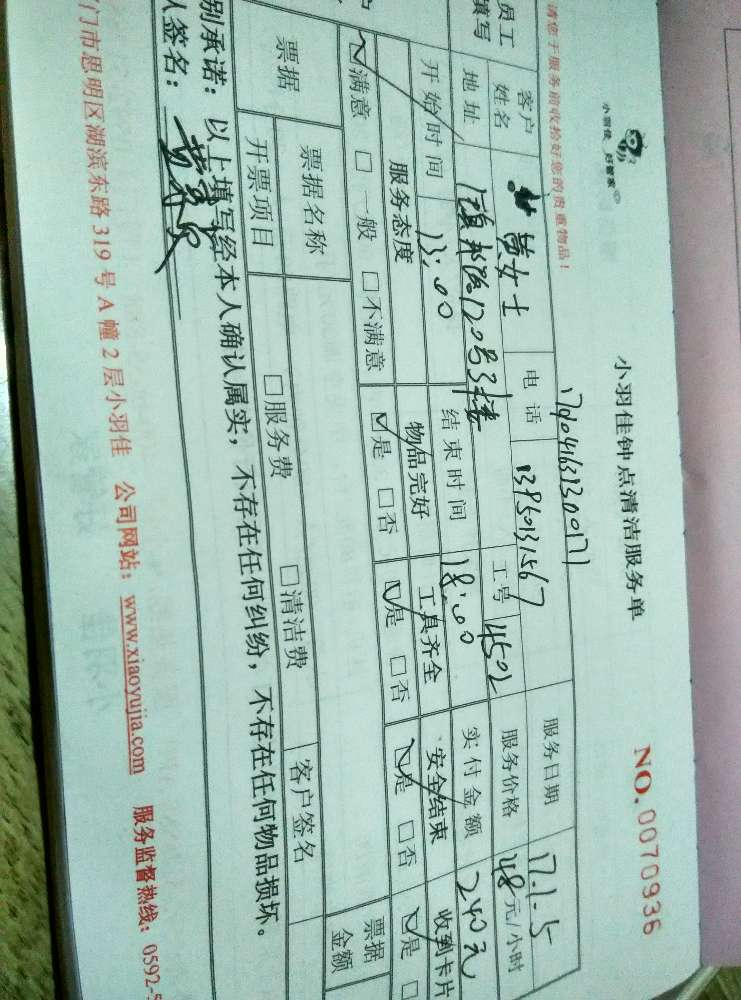 小羽佳 好管家
小羽佳钟点清洁服务单
NO. 0070936
请您于服务前收拾好您的贵重物品！
员工填写 客户姓名 黄女士 电话 13950131567 工号 4502 服务日期 17.1.5
服务价格 48元/小时
地址 120号3楼
开始时间 13:00 结束时间 18:00 实付金额 240元
服务态度 物品完好 工具齐全 安全结束 收到卡片
☑满意 □一般 □不满意 ☑是 □否 ☑是 □否 ☑是 □否 ☑是 □
票据 票据名称 □服务费 □清洁费 票据金额
开票项目 客户签名
别承诺：以上填写经本人确认属实，不存在任何纠纷，不存在任何物品损坏。
人签名：
门市思明区湖滨东路319号A幢2层小羽佳 公司网站：www.xiaoyujia.com 服务监督热线：0592-5